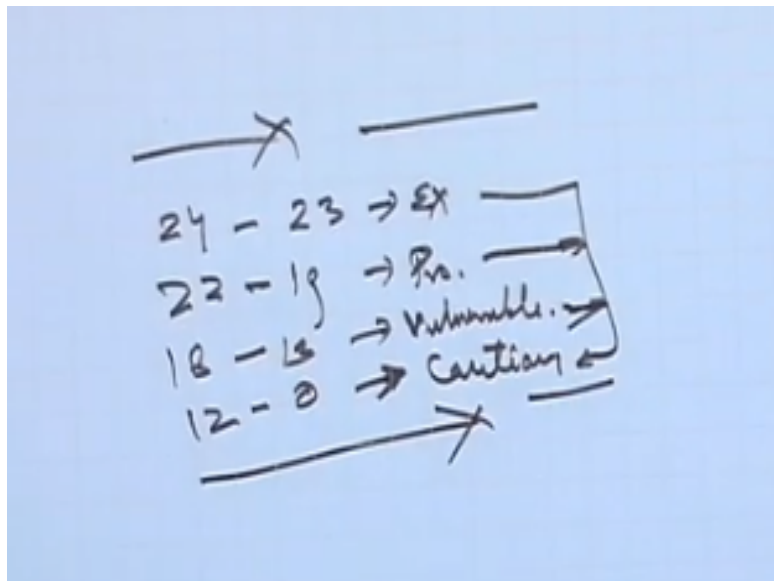 24 - 23 → EX
22 - 19 → Pro.
18 - 13 → Vulnerable.
12 - 0 → Caution